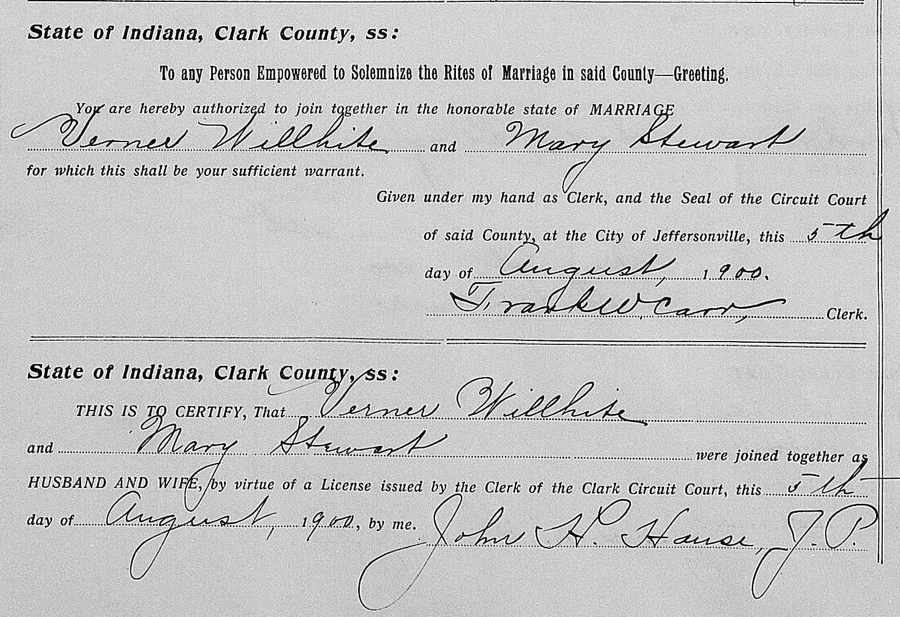 State of Indiana, Clark County, ss:
To any Person Empowered to Solemnize the Rites of Marriage in said County—Greeting.
You are hereby authorized to join together in the honorable state of MARRIAGE
Verner Willhite and Mary Stewart
for which this shall be your sufficient warrant.
Given under my hand as Clerk, and the Seal of the Circuit Court
of said County, at the City of Jeffersonville, this 5th
day of August, 1900.
Frank W. Carr, Clerk.
State of Indiana, Clark County, ss:
THIS IS TO CERTIFY, That Verner Willhite
and Mary Stewart were joined together as
HUSBAND AND WIFE, by virtue of a License issued by the Clerk of the Clark Circuit Court, this 5th
day of August, 1900, by me. John H. Hause, J.P.